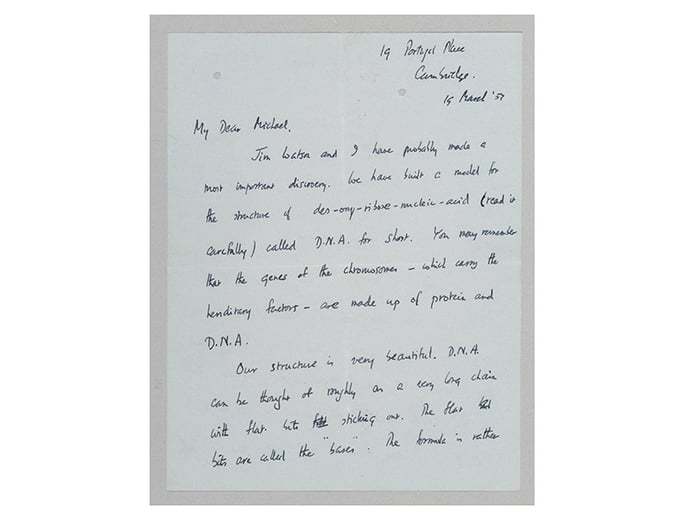 19 Portugal Place
Cambridge.
19 March '53
My Dear Michael,
Jim Watson and I have probably made a
most important discovery. We have built a model for
the structure of des-oxy-ribose-nucleic-acid (read it
carefully) called D.N.A. for short. You may remember
that the genes of the chromosomes – which carry the
hereditary factors – are made up of protein and
D.N.A.
Our structure is very beautiful. D.N.A.
can be thought of roughly as a very long chain
with flat bits sticking out. The flat
bits are called the "bases". The formula is rather